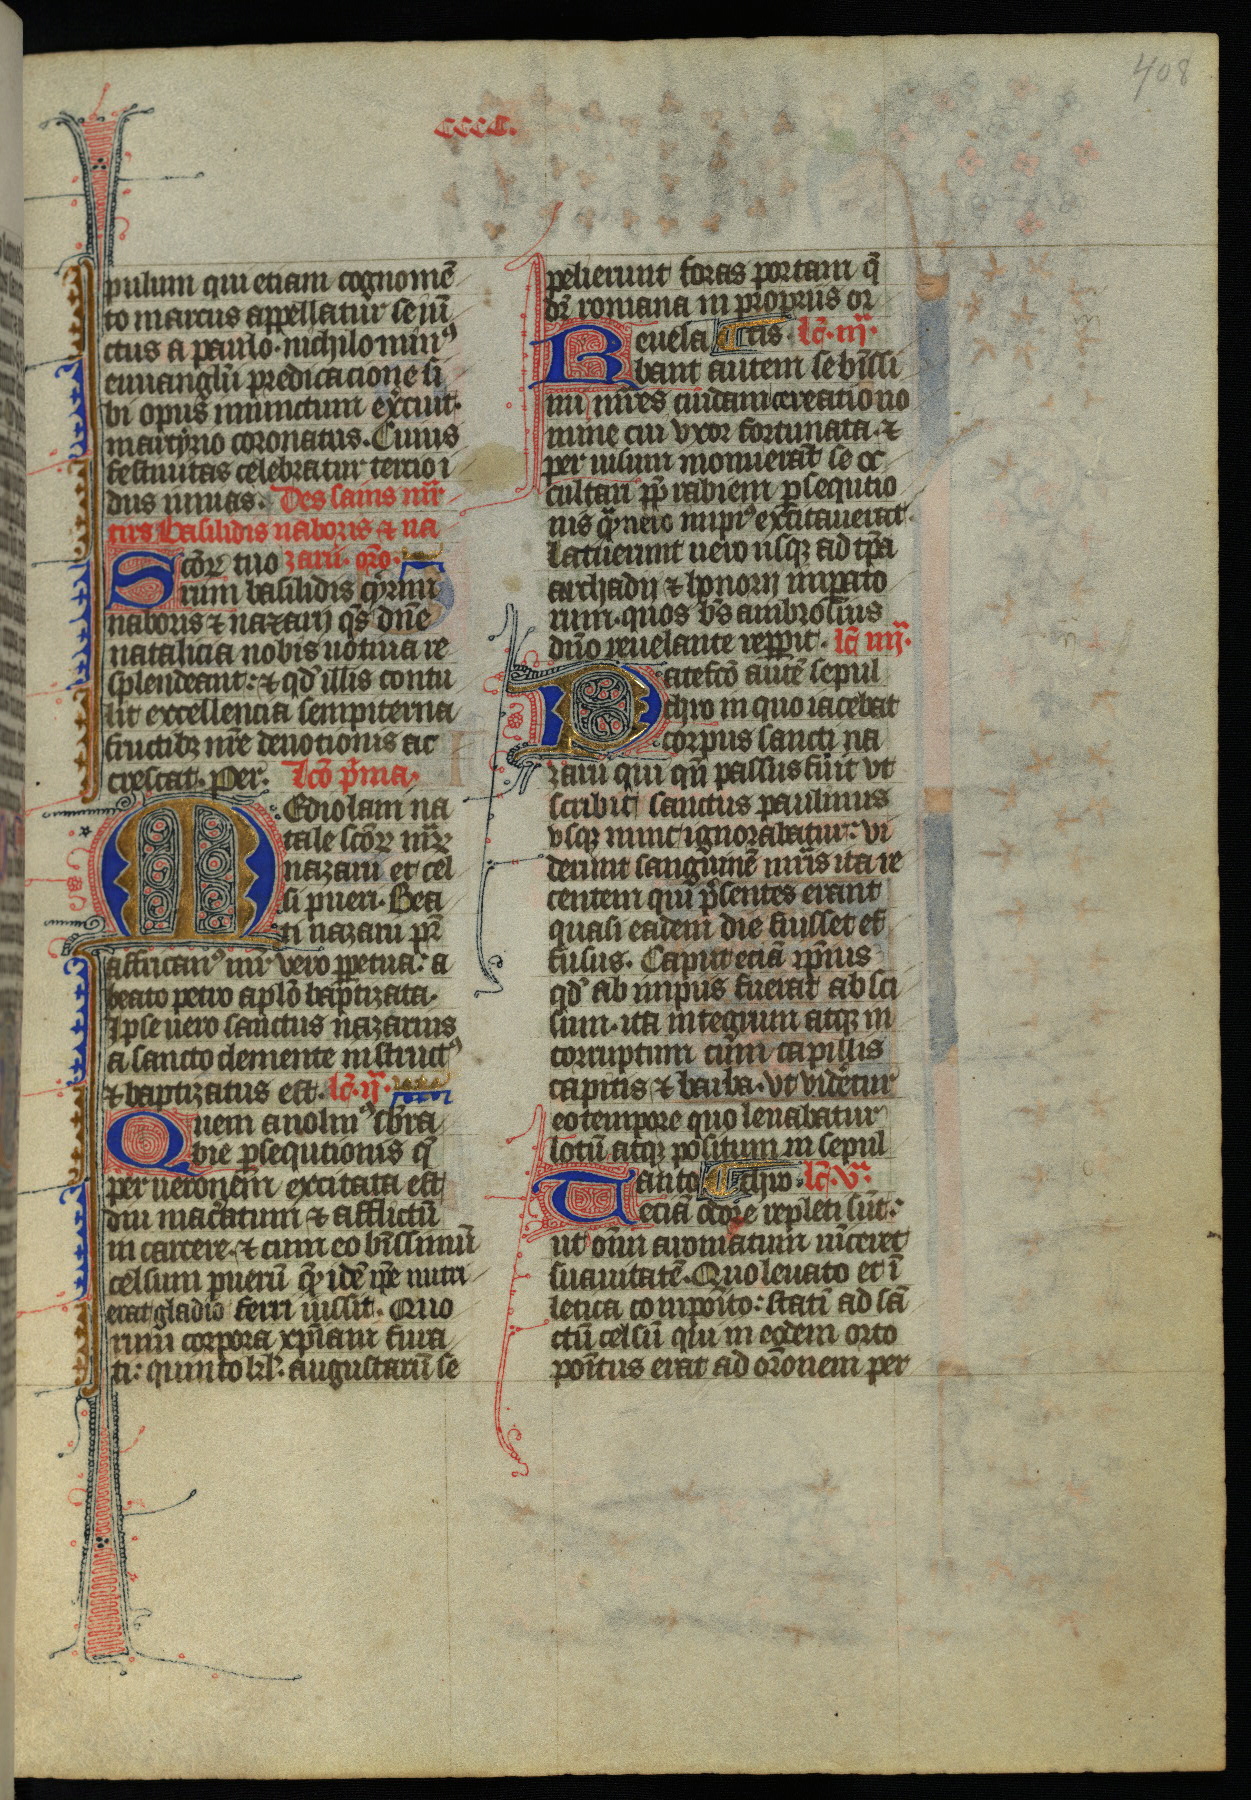 408
cccc.
pulum qui etiam cognomē
to marcus appellatur seiū
ctus a paulo. nichilomin⁹
euuanglii predicacione si
bi opus iniunctum exercuit.
martyrio coronatus. Cuius
festiuitas celebratur tercio i
dus iunias. Des sains mr̄
tirs basilidis naboris & na
Scōꝝ tuo zarii. oro.
rum basilidis cyrini
naboris & nazarij qs̄ dn̄e
natalicia nobis uotiua re
splendeant: & qd̓ illis contu
lit excellencia sempiterna
fructibꝫ nr̄e deuotionis ac
crescat. Per. lcō p̓ma.
Mediolani na
tale scōꝝ mr̄ꝝ
nazarii et cel
si pueri. Bea
ti nazarii pr̄
affrican⁹ mr̄ vero ꝑpetua: a
beato petro aplō baptizata.
Ipse uero sanctus nazarius
a sancto clemente instruct⁹
& baptizatus est. lc̄. ij.
Quem anolin⁹ cb̄ra
bie ꝑsequtionis q̄
per neronem excitata est
diu mac̄atum & afflictū
in carcere. & cum eo bn̄ssimū
celsum puerū quē idē ip̄e nutri
erat gladio ferri iussit. Quo
rum corpora xp̄iani fura
ti: quinto kl̓. augustarū se
pelierunt foras portam q̄
dr̄ romana in propriis or
Reuela tis. lc̄. iij.
bant autem se bn̄ssi
mi mr̄es cuidam cereatio no
mine cui vxor fortunata. &
per uisum monuerat se oc
cultari ꝓp̄ rabiem ꝑsequtio
nis quā nero imp̄⁹ excitauerat.
Latuerunt uero usqꝫ ad tp̄a
archadii & honorij impato
rum. quos bs̄ ambrosius
dn̄o reuelante repperit. lc̄ iiij.
Patefcō autē sepul
chro in quo iacebat
corpus sancti na
zarii qui qn̄ passus fuit vt
scribit sanctus paulinus
vsqꝫ nunc ignorabatur: vi
derunt sanguinē mr̄is ita re
centem qui p̄sentes erant
quasi eadem die fuisset ef
fusus. Caput etiā ip̄ius
qd̓ ab impiis fuerat absci
sum. ita integrum atqꝫ in
corruptum cum capillis
capitis & barba. vt videretur
eo tempore quo leuabatur
lotū atqꝫ positum in sepul
Tanto chro. lc̄. v.
eciā odore repleti sūt:
ut omniū aromatum uinceret
suauitatē. Quo leuato et ī
letica composito: statī ad sā
ctū celsū qui in eodem orto
positus erat ad orōnem per